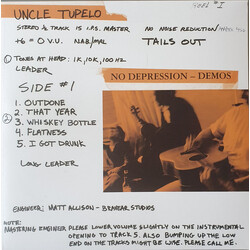 UNCLE TUPELO
STEREO ½ TRACK 15 I.P.S. MASTER
NO NOISE REDUCTION
+6 = 0 V.U. NAB/MAL
TAILS OUT
TONES AT HEAD: 1K, 10K, 100 HZ
LEADER
NO DEPRESSION – DEMOS
SIDE #1
1. OUTDONE
2. THAT YEAR
3. WHISKEY BOTTLE
4. FLATNESS
5. I GOT DRUNK
LONG LEADER
ENGINEER: MATT ALLISON - BRAVEAR STUDIOS
NOTE:
MASTERING ENGINEER, PLEASE LOWER VOLUME SLIGHTLY ON THE INSTRUMENTAL
OPENING TO TRACK 5. ALSO BUMPING UP THE LOW
END ON THE TRACKS MIGHT BE WISE. PLEASE CALL ME.